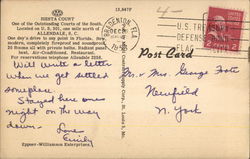 13,847F
SIESTA COURT
One of the Outstanding Courts of the South.
Located on U. S. 301, one mile north of
ALLENDALE, S. C.
One day's drive to any point in Florida. New,
modern, completely fireproof and soundproof.
20 Rooms all with private baths. Radiant panel
heat, Air-Conditioned. Restaurant.
For reservations telephone Allendale 2256.
Will write a letter
when we get settled
someplace.
Stayed here one
night on the way
down.
Love
Emily
Eppner-Williamson Enterprises,
BRADENTON, FLA.
FEB
1953
U.S. TREASURY
DEFENSE
FLAG
2
Post Card
Mr. + Mrs. George Foote
Newfield
N. York